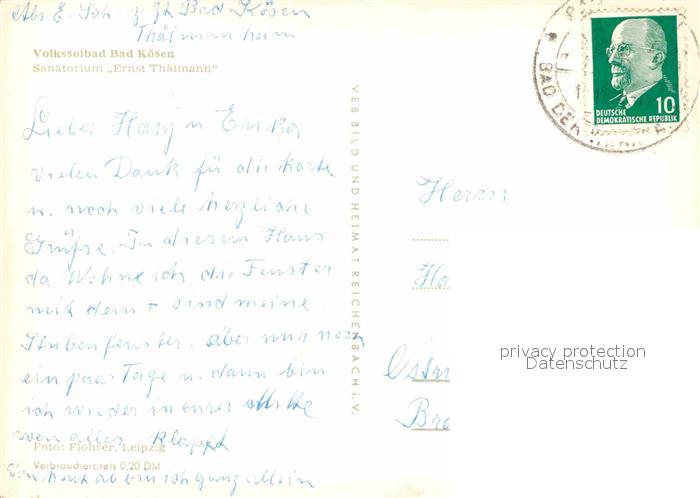 Abs E. Sch. z. Zt Bad Kösen
Thälmannheim
Volkssolbad Bad Kösen
Sanatorium „Ernst Thälmann“
Lieber Harry u Erika
vielen Dank für die Karte
u. noch viele herzliche
Grüße. In diesem Haus
da Wohne ich die Fenster
mit dem + sind meine
Stubenfenster. aber nur noch
ein paar Tage u. dann bin
ich wieder in eurer Mitte
wen alles klapt
Foto: Flohrer, Leipzig
Verbraucherpreis 0,20 DM
Von heut ab bin ich ganz allein
VEB BILD UND HEIMAT REICHENBACH i. V.
BAD
10
DEUTSCHE
DEMOKRATISCHE REPUBLIK
Herrn
Ha
Bra
privacy protection
Datenschutz